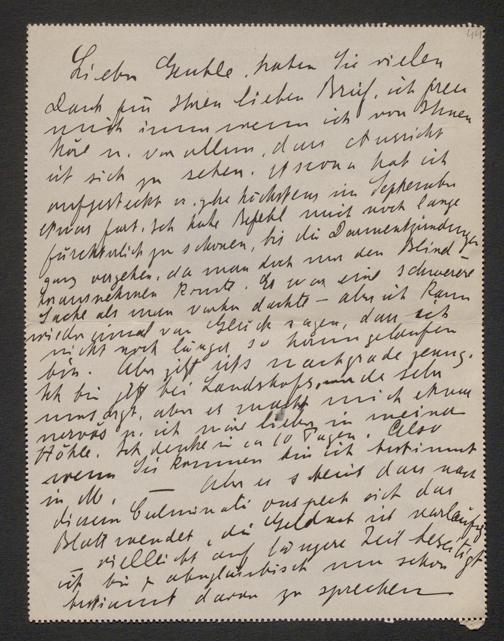 Lieber Genthe, haben Sie vielen
Dank für Ihren lieben Brief, ich freu
mich immer wenn ich von Ihnen
höre u. vor allem, dass Aussicht
ist sich zu sehen. Ascona hat ich
aufgesteckt u. gehe höchstens im September
etwas fort. Ich habe Befehl mich noch lange
fürchterlich zu schonen, bis die Darmentzündungen
ganz vergehen, da man doch nur den Blind-
herausnehmen konnte. Es war eine schwerere
Sache als man vorher dachte – aber ich kann
wieder einmal von Glück sagen, dass ich
nicht noch länger so herumgelaufen
bin. Aber jetzt ists nachgrade genug.
Ich bin jetzt bei Landshoffs, werde sehr
umsorgt, aber es macht mich etwas
nervös u. ich wäre lieber in meiner
Höhle. Ich denke in ca 10 Tagen. Also
wenn Sie kommen bin ich bestimmt
in M. — Aber es scheint dass nach
diesem sich das
Blatt wendet, die Geldnot ist vorläufig
– vielleicht auf längere Zeit beseitigt
ich bin zu abergläubisch um schon
bestimmt davon zu sprechen